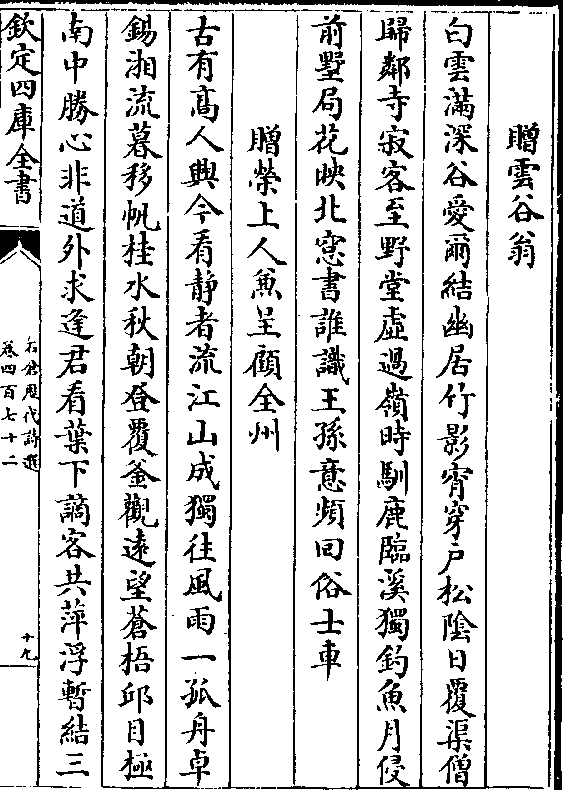 贈雲谷翁
白雲滿深谷愛爾結幽居竹影宵穿户松陰日覆渠僧
歸鄰寺寂客至野堂虛過嶺時馴鹿臨溪獨釣魚月侵
前墅局花映北窻書誰識王孫意頻回俗士車
贈榮上人兼呈顧全州
古有髙人興今看静者流江山成獨往風雨一孤舟卓
錫湘流暮移帆桂水秋朝登覆釜觀逺望蒼梧邱目極
南中勝心非道外求逢君看葉下謫客共萍浮暫結三
欽定四庫全書
石倉歴代詩選
卷四百七十二
十九